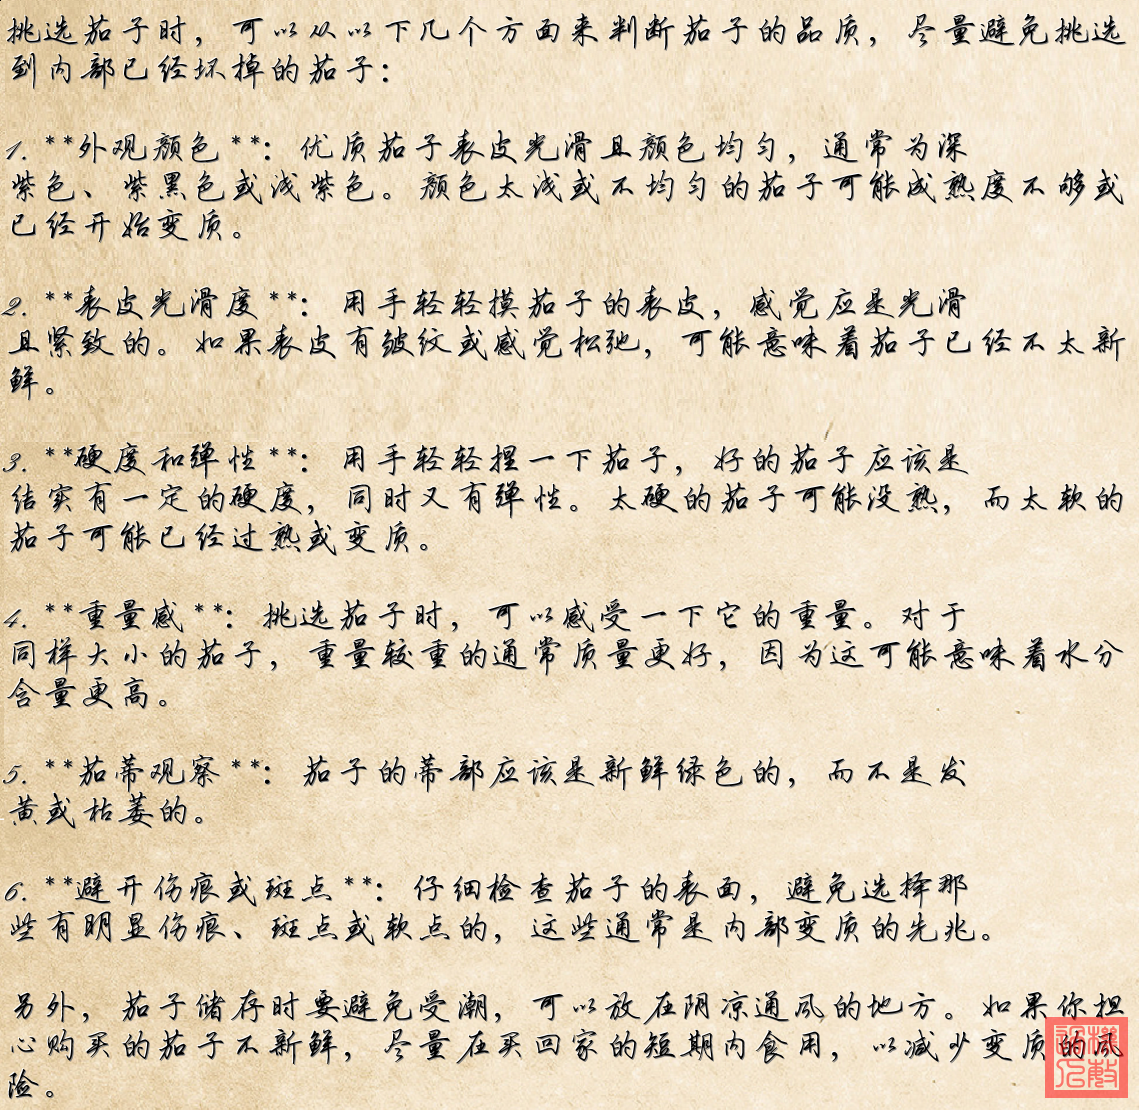 挑选茄子时，可以从以下几个方面来判断茄子的品质，尽量避免挑选
到内部已经坏掉的茄子：
1. **外观颜色**：优质茄子表皮光滑且颜色均匀，通常为深
紫色、紫黑色或浅紫色。颜色太浅或不均匀的茄子可能成熟度不够或
已经开始变质。
2. **表皮光滑度**：用手轻轻摸茄子的表皮，感觉应是光滑
且紧致的。如果表皮有皱纹或感觉松弛，可能意味着茄子已经不太新
鲜。
3. **硬度和弹性**：用手轻轻捏一下茄子，好的茄子应该是
结实有一定的硬度，同时又有弹性。太硬的茄子可能没熟，而太软的
茄子可能已经过熟或变质。
4. **重量感**：挑选茄子时，可以感受一下它的重量。对于
同样大小的茄子，重量较重的通常质量更好，因为这可能意味着水分
含量更高。
5. **茄蒂观察**：茄子的蒂部应该是新鲜绿色的，而不是发
黄或枯萎的。
6. **避开伤痕或斑点**：仔细检查茄子的表面，避免选择那
些有明显伤痕、斑点或软点的，这些通常是内部变质的先兆。
另外，茄子储存时要避免受潮，可以放在阴凉通风的地方。如果你担
心购买的茄子不新鲜，尽量在买回家的短期内食用，以减少变质的风
险。